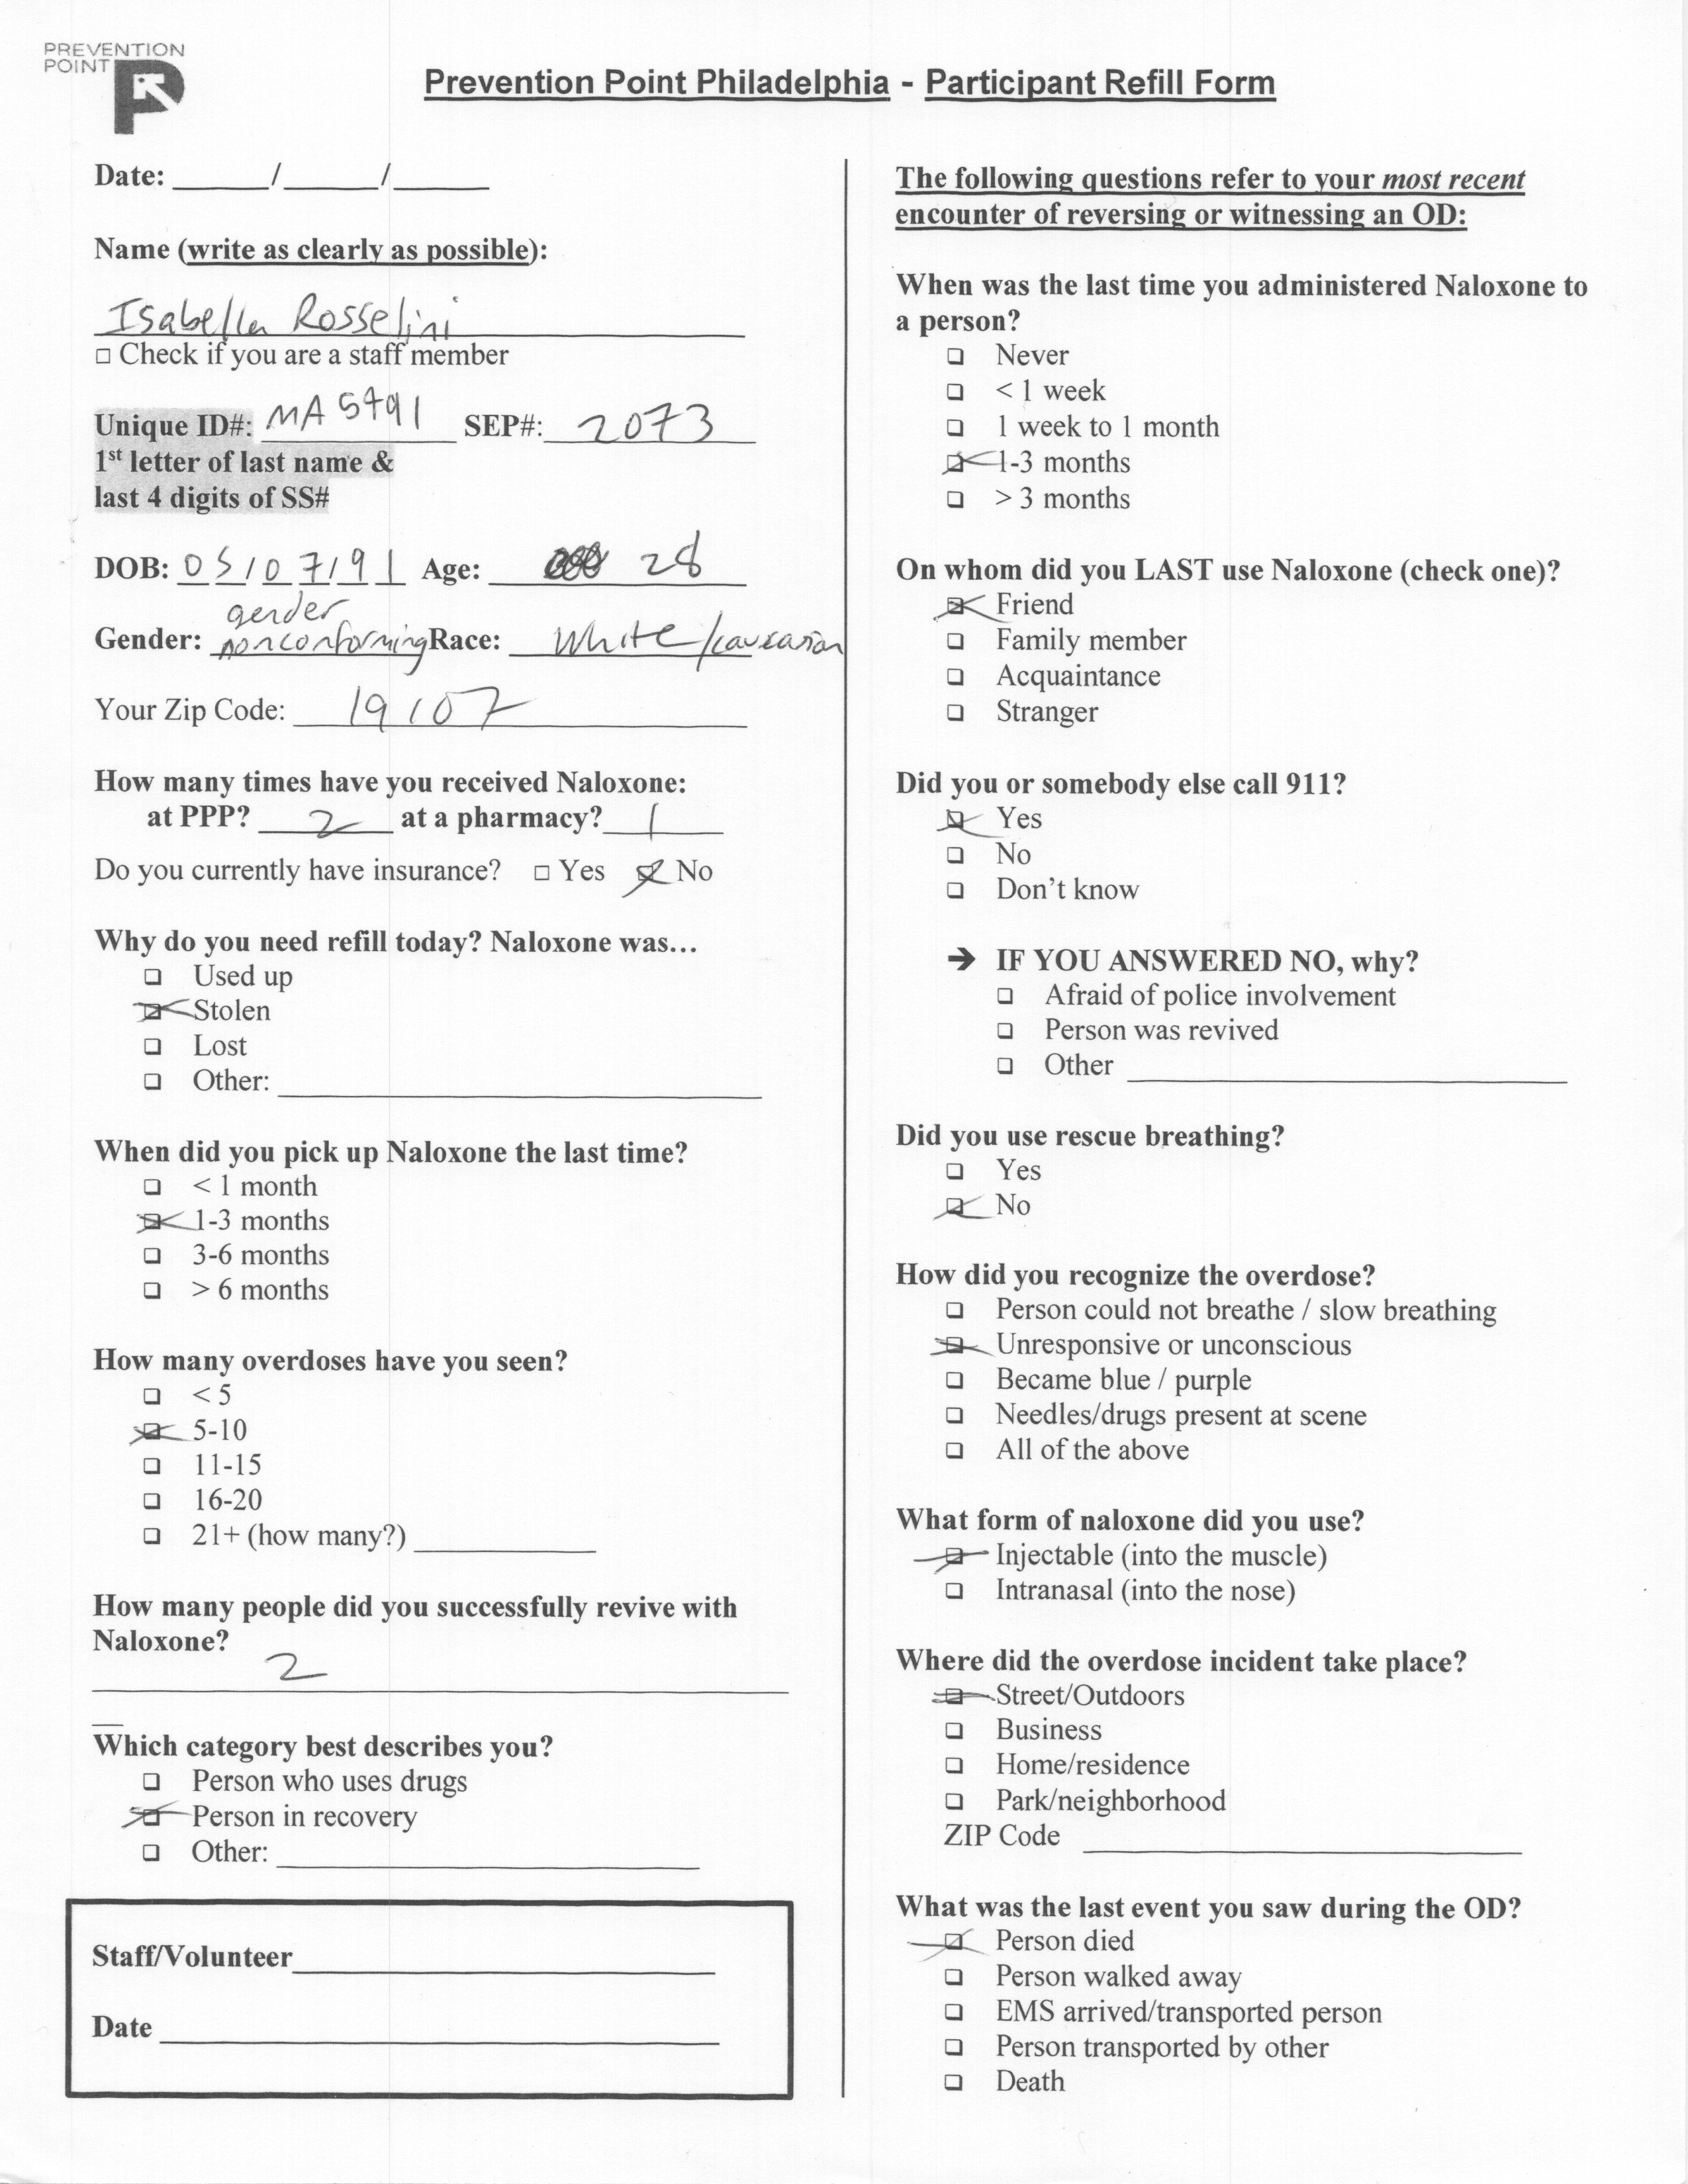 PREVENTION
POINT
Prevention Point Philadelphia - Participant Refill Form
Date: _____/_____/_____
Name (write as clearly as possible):
Isabella Rosselini
□ Check if you are a staff member
Unique ID#: MA5791 SEP#: 2073
1st letter of last name &
last 4 digits of SS#
DOB: 05/07/91 Age: 28
gender
Gender: nonconforming Race: White/caucasian
Your Zip Code: 19107
How many times have you received Naloxone:
at PPP? 2 at a pharmacy? 1
Do you currently have insurance? □ Yes ☒ No
Why do you need refill today? Naloxone was...
❑ Used up
☒ Stolen
❑ Lost
❑ Other: ____________
When did you pick up Naloxone the last time?
❑ < 1 month
☒ 1-3 months
❑ 3-6 months
❑ > 6 months
How many overdoses have you seen?
❑ < 5
☒ 5-10
❑ 11-15
❑ 16-20
❑ 21+ (how many?) ____________
How many people did you successfully revive with
Naloxone?
2
Which category best describes you?
❑ Person who uses drugs
☒ Person in recovery
❑ Other: ____________
Staff/Volunteer____________
Date ____________
The following questions refer to your most recent
encounter of reversing or witnessing an OD:
When was the last time you administered Naloxone to
a person?
❑ Never
❑ < 1 week
❑ 1 week to 1 month
☒ 1-3 months
❑ > 3 months
On whom did you LAST use Naloxone (check one)?
☒ Friend
❑ Family member
❑ Acquaintance
❑ Stranger
Did you or somebody else call 911?
☒ Yes
❑ No
❑ Don't know
➔ IF YOU ANSWERED NO, why?
❑ Afraid of police involvement
❑ Person was revived
❑ Other ____________
Did you use rescue breathing?
❑ Yes
☒ No
How did you recognize the overdose?
❑ Person could not breathe / slow breathing
☒ Unresponsive or unconscious
❑ Became blue / purple
❑ Needles/drugs present at scene
❑ All of the above
What form of naloxone did you use?
☒ Injectable (into the muscle)
❑ Intranasal (into the nose)
Where did the overdose incident take place?
☒ Street/Outdoors
❑ Business
❑ Home/residence
❑ Park/neighborhood
ZIP Code ____________
What was the last event you saw during the OD?
☒ Person died
❑ Person walked away
❑ EMS arrived/transported person
❑ Person transported by other
❑ Death